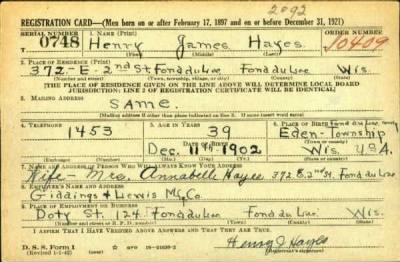 2092
REGISTRATION CARD—(Men born on or after February 17, 1897 and on or before December 31, 1921)
SERIAL NUMBER 1. NAME (Print) ORDER NUMBER
0748 Henry James Hayes 10409
2. PLACE OF RESIDENCE (Print)
372-E-2nd St. Fond du Lac Fond du Lac Wis.
(Number and street) (Town, township, village, or city) (County) (State)
[THE PLACE OF RESIDENCE GIVEN ON THE LINE ABOVE WILL DETERMINE LOCAL BOARD
JURISDICTION; LINE 2 OF REGISTRATION CERTIFICATE WILL BE IDENTICAL]
3. MAILING ADDRESS
SAME.
[Mailing address if other than place indicated on line 2. If same insert word same]
4. TELEPHONE 5. AGE IN YEARS 6. PLACE OF BIRTH Fond du Lac County
1453 39 Eden-Township
DATE OF BIRTH (Town or county)
Dec. 11th 1902 Wis. USA.
(Mo.) (Day) (Yr.) (State or country)
7. NAME AND ADDRESS OF PERSON WHO WILL ALWAYS KNOW YOUR ADDRESS
Wife- Mrs. Annabelle Hayes 372 E. 2nd St. Fond du Lac
8. EMPLOYER'S NAME AND ADDRESS
Giddings & Lewis M. Co.
9. PLACE OF EMPLOYMENT OR BUSINESS
Doty St. 124. Fond du Lac Fond du Lac. Wis.
(Number and street or R. F. D. number) (Town) (County) (State)
I AFFIRM THAT I HAVE VERIFIED ABOVE ANSWERS AND THAT THEY ARE TRUE.
D. S. S. Form 1 GPO 16-21630-2 Henry J Hayes
(Revised 1-1-42) (Registrant's signature)